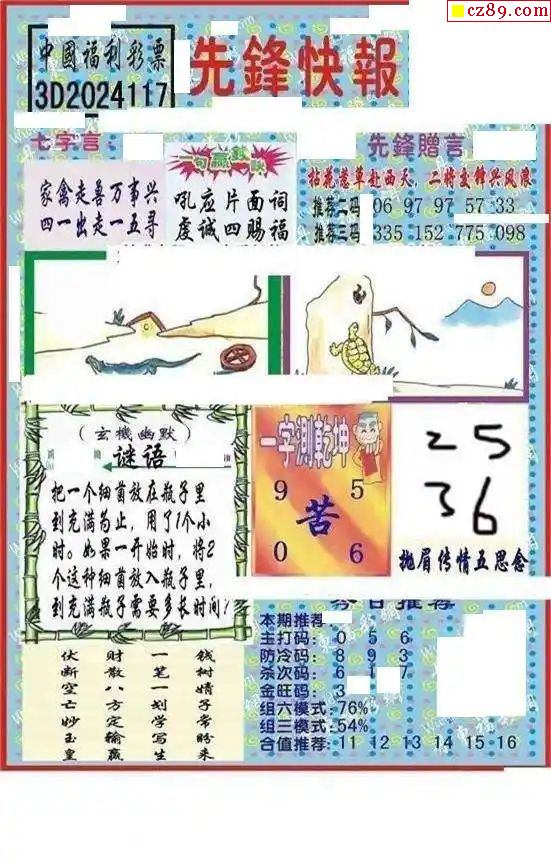 cz89.com
中國福利彩票
3D2024117
先鋒快報
七字言:
家禽走喜万事兴
四一出走一五寻
一句赢数诀
吼应片面词
虔诚四赐福
先鋒贈言
拈花惹草赴西天，二将交锋兴风浪
推荐二码 06 97 97 57 33
推荐三码 335 152 775 098
(玄機幽默)
谜语
把一个细菌放在瓶子里
到充满为止，用了1个小
时。如果一开始时，将2
个这种细菌放入瓶子里，
到充满瓶子需要多长时间?
一字測乾坤
9 5
苦
0 6
25
36
抛眉传情五思念
今日推荐
本期推荐
主打码: 0 5 6
防冷码: 8 9 3
杀次码: 6 1 7
金旺码: 3
组六模式:76%
组三模式:54%
合值推荐:11 12 13 14 15 16
伏断空亡妙玉皇
财散八方定输赢
一笔一划学写生
钱树婧子常盼来